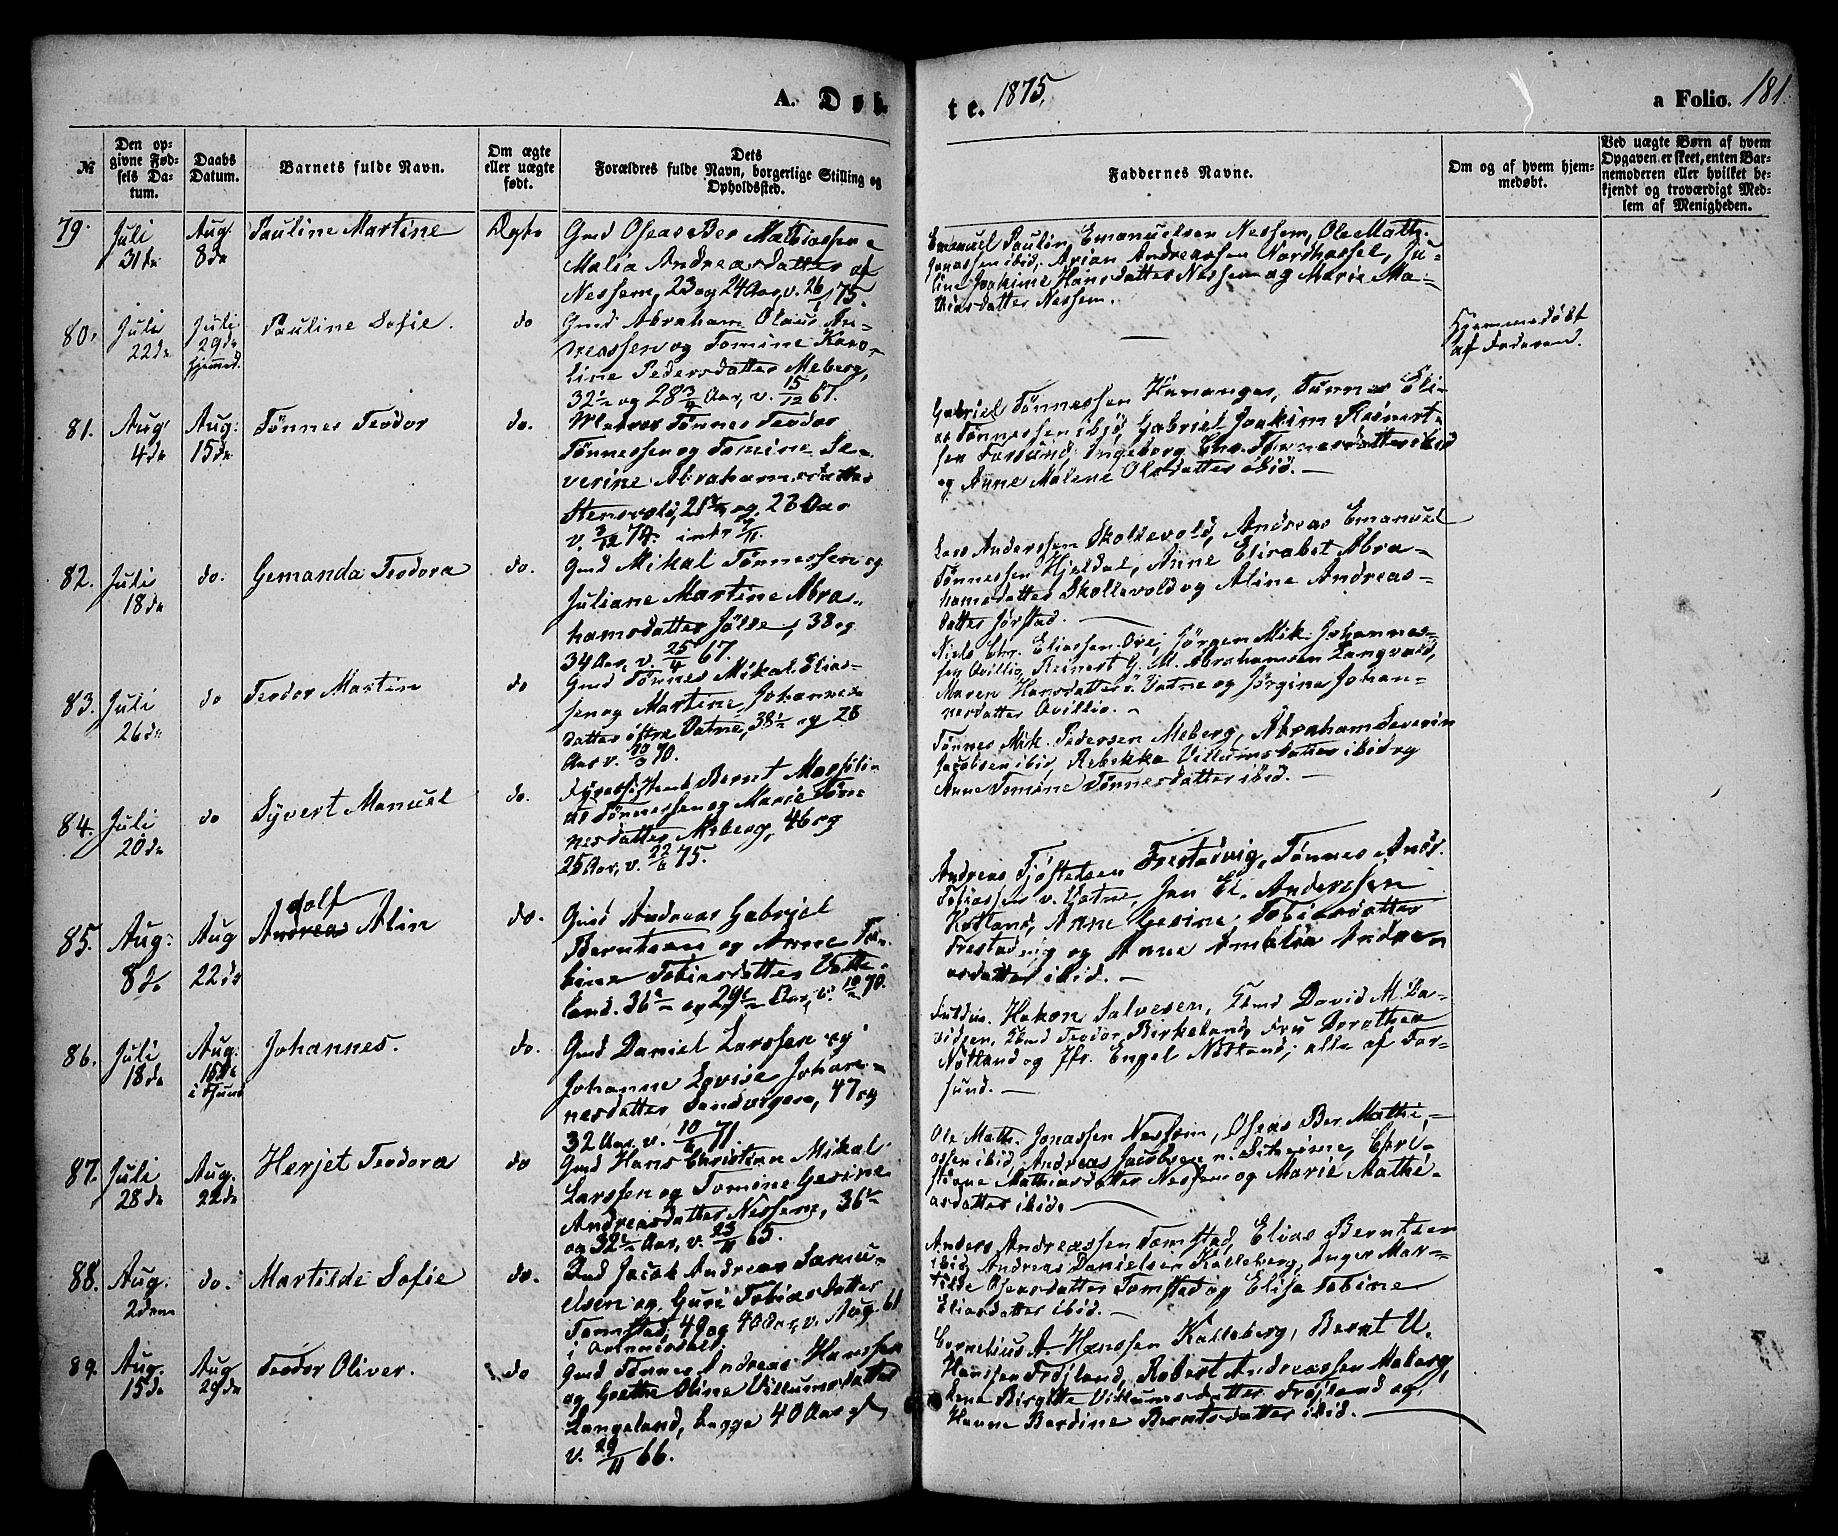 A. Døb-
te. 1875.
a Folio. 181.
№
Den op-
givne Fød-
sels Da-
tum.
Daabs
Datum.
Barnets fulde Navn.
Om ægte
eller uægte
født.
Dets
Forældres fulde Navn, borgerlige Stilling og
Opholdssted.
Faddernes Navne.
Om og af hvem hjem-
medøbt.
Ved uægte Børn af hvem
Opgaven er skeet, enten Bar-
nemoderen eller hvilket be-
kjendt og troværdigt Med-
lem af Menigheden.
79.
Juli
31de
Aug.
8de
Pauline Martine
Ægte
Gmd Oseas Ber Mathiassen
Malia Andreasdatter af
Nessem, 23 og 24 Aar, v. 26/1 75.
Emanuel Paulin Emanuelsen Nessem, Ole Math.
Jonassen ibid, Arian Andreassen Nordhassel, Ju-
line Joakime Hansdatter Nessem og Marie Ma-
thiasdatter Nessem.
80.
Juli
22de
Juli
29de
hjemmed.
Pauline Sofie.
do
Gmd Abraham Olaus An-
dreassen og Tomine Karo-
line Pedersdatter Meberg,
32½ og 28¾ Aar, v. 15/12 67.
—
Hjemmedøbt
af Faderen.
81.
Aug.
4de
Aug:
15de
Tønnes Teodor
do.
Tønnes Teodor
Tønnessen og Tomine Se-
verine Abrahamsdatter
Stensvold, og 23 Aar
v. 3/12 74.
Gabriel Tønnessen Hananger, Tønnes Eli-
as Tønnessen ibid, Gabriel Joakim Reinert-
sen Farsund, Ingeborg Tønnesdatter ibid
og Anne Malene Olsdatter ibid. —
82.
Juli
18de
do.
Gemanda Teodora
do.
Gmd Mikal Tønnessen og
Juliane Martine Abra-
hamsdatter Jølle, 38 og
34 Aar, v. 25/4 67.
Lars Anderssen Skollevold, Andreas Emanuel
Tønnessen Hjeldal, Anne Elisabet Abra-
hamsdatter Skollevold og Aline Andreas-
datter Jørstad. —
83.
Juli
26de
do
Teodor Martin
do
Gmd Tønnes Mikal Elias-
sen og Martine Johannes-
datter østre Vatne, 38½ og 28
Aar v. 70.
Niels Chr. Eliassen Ore, Jørgen Mik. Johannes-
sen Qvillio, Reinert G. M. Abrahamsen Langvald,
Maren Hansdatter Vatne og Jørgine Johan-
nesdatter Qvillio. —
84.
Juli
20de
do
Syvert Manuel
do.
Fyrassistent Bernt
Tønnessen og Marie Tøn-
nesdatter Meberg, 46 og
25 Aar, v. 75.
Tønnes Mik. Pedersen Meberg, Abraham Severin
Jacobsen ibid, Rebekka Villumsdatter ibid og
Anne Tomine Tønnesdatter ibid. —
85.
Aug:
8de
Aug
22de
Andreas dolf Alin
do.
Gmd Andreas Gabriel
Berntsen og Anne To-
bine Tobiasdatter Vatte-
land. 36½ og 29½ Aar, v. 70.
Andreas Tjøstelsen Frestadvig, Tønnes Andr.
Tobiassen v. Vatne, Jan El. Anderssen
Kotland, Anne Gesine Tobiasdatter
Frestadvig og Anne Amalia Andre-
asdatter ibid. —
86.
Juli
18de
Aug:
15de
Johannes.
do.
Gmd Daniel Larssen og
Johanne Lovise Johan-
nesdatter Sandvigen, 47 og
32 Aar. v. 71
Hakon Salvesen, David M. Da-
vidsen, Teodor Birkeland, Fru Dorothea
Nøtland og Jfr. Engel Nøtland; alle af Far-
sund. —
87.
Juli
28de
Aug.
22de
Herjet Teodora
do
Gmd Hans Christian Mikal
Larssen og Tomine Gesine
Andreasdatter Nessem, 36½
og 32½ Aar, v. 23/11 65.
Ole Math. Jonassen Nessem, Oseas Ber. Mathi-
assen ibid, Andreas Jacobsen, Chri-
stiane Mathiasdatter Nessem og Marie Mathi-
asdatter ibid. —
88.
Aug:
2den
do.
Martilde Sofie
do.
Gmd Jacob Andreas Samu-
elsen og Guri Tobiasdatter
Tomstad, 49 og 40 Aar, v. Aug. 61
i
Anders Andreassen Tomstad, Elias Berntsen
ibid, Andreas Danielsen Kalleberg, Inger Mar-
tilde Oseasdatter Tomstad og Elise Tobine
Eliasdatter ibid. —
89.
Aug.
15de
Aug
29de
Teodor Oliver.
do
Gmd Tønnes Andreas Hanssen
og Grethe Oline Villumsdatter
Langeland, begge 40 Aar gl,
v. 29/11 66.
Cornelius A. Hanssen Kalleberg, Bernt U.
Hanssen Frøjland, Robert Andreassen Meberg,
Lene Birgitte Villumsdatter Frøjland og
Hanne Berdine Berntsdatter ibid. —